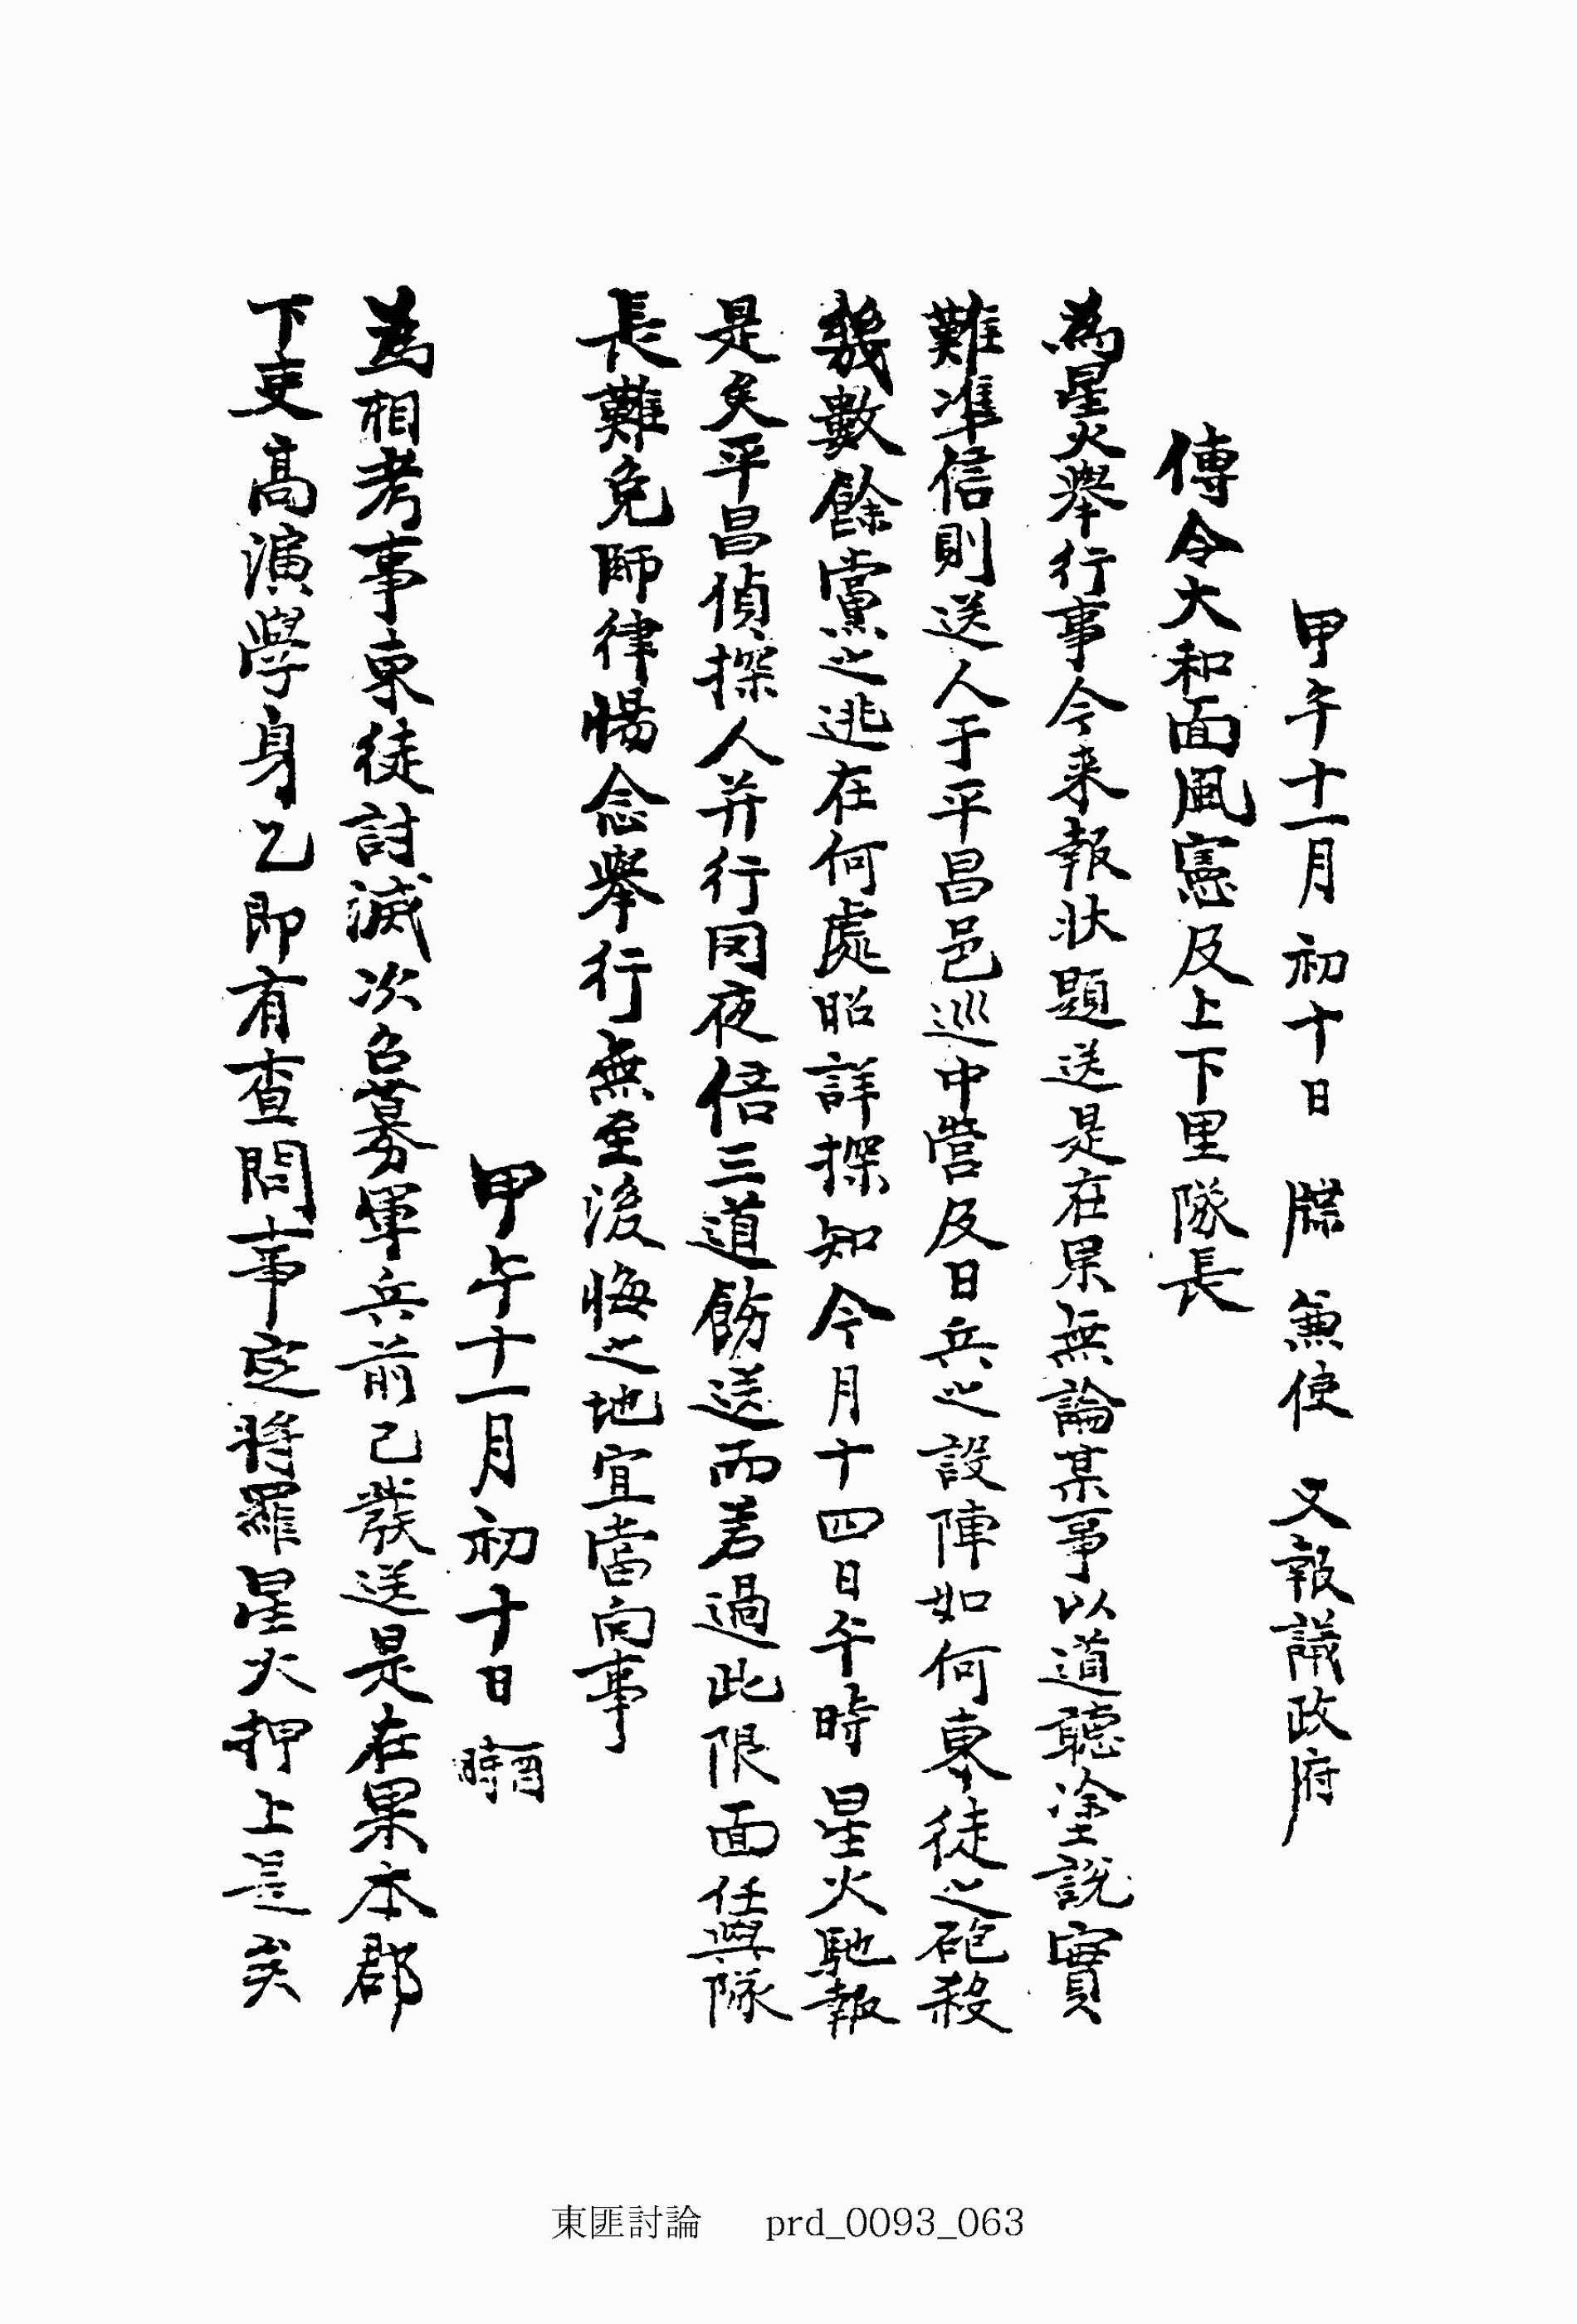 甲午十一月初十日 牒 兼使 又報議政府
傳令大和面風憲及上下里隊長
為星火擧行事今来報狀題送是在果無論某事以道聽塗說實
難準信則送人于平昌邑巡中營及日兵之設陣如何東徒之砲殺
幾數餘黨之逃在何處昭詳探知今月十四日午時星火馳報
是矣平昌偵探人并行罔夜倍三道飭送而若過此限面任與隊
長難免師律惕念擧行無至後悔之地宜當向事
甲午十一月初十日 酉時
為相考事東徒討滅次召募軍兵前已發送是在果本郡
下吏高演學身乙即有查問事是將羅星火押上是矣
東匪討論 prd_0093_063